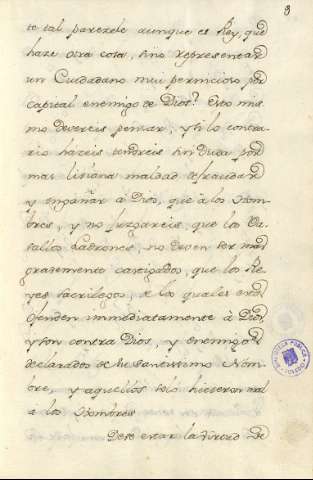 3
te tal parezele aunque es Rey, que
haze otra cosa, sino representar
un Ciudadano mui pernicioso por
capital enemigo de Dios? Esto mis
mo devereis pensar, y si lo contra
rio hazeis tendreis sin duda por
mas liviana maldad defraudar
y engañar à Dios, que à los Hom
bres, y no juzgareis que los Va
sallos Ladrones, no deven ser mas
gravemente castigados, que los Re
yes sacrilegos, a los quales
Ofenden immediatamente à Dios,
y son contra Dios, y enemigos
declarados de su santissimo Nom
bre, y aquellos solo hicieron mal
a los Hombres
Deve estar la virtud de